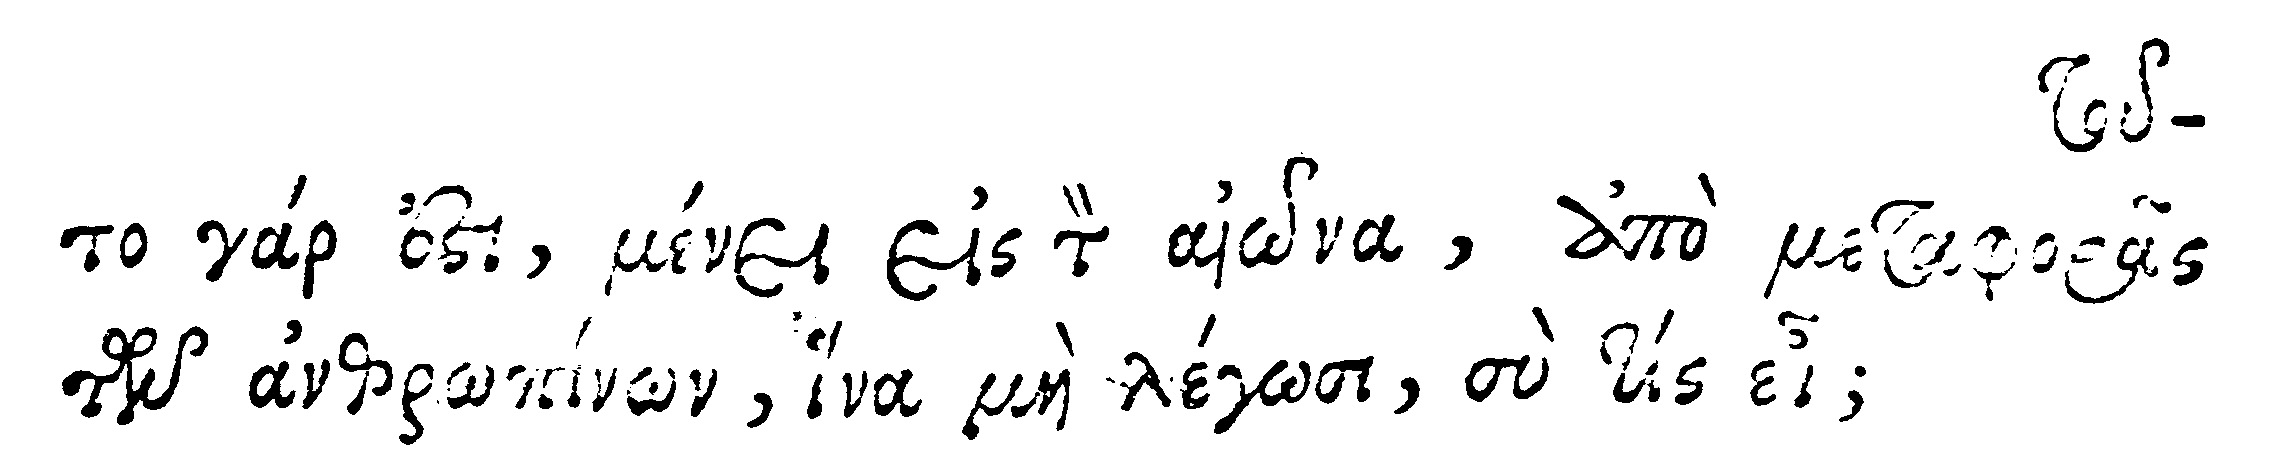 τοῦ-
το γάρ ἐστι, μένει εἰς τὸν αἰῶνα, ἀπὸ μεταφορᾶς
τῶν ἀνθρωπίνων, ἵνα μὴ λέγωσι, σὺ τίς εἶ;